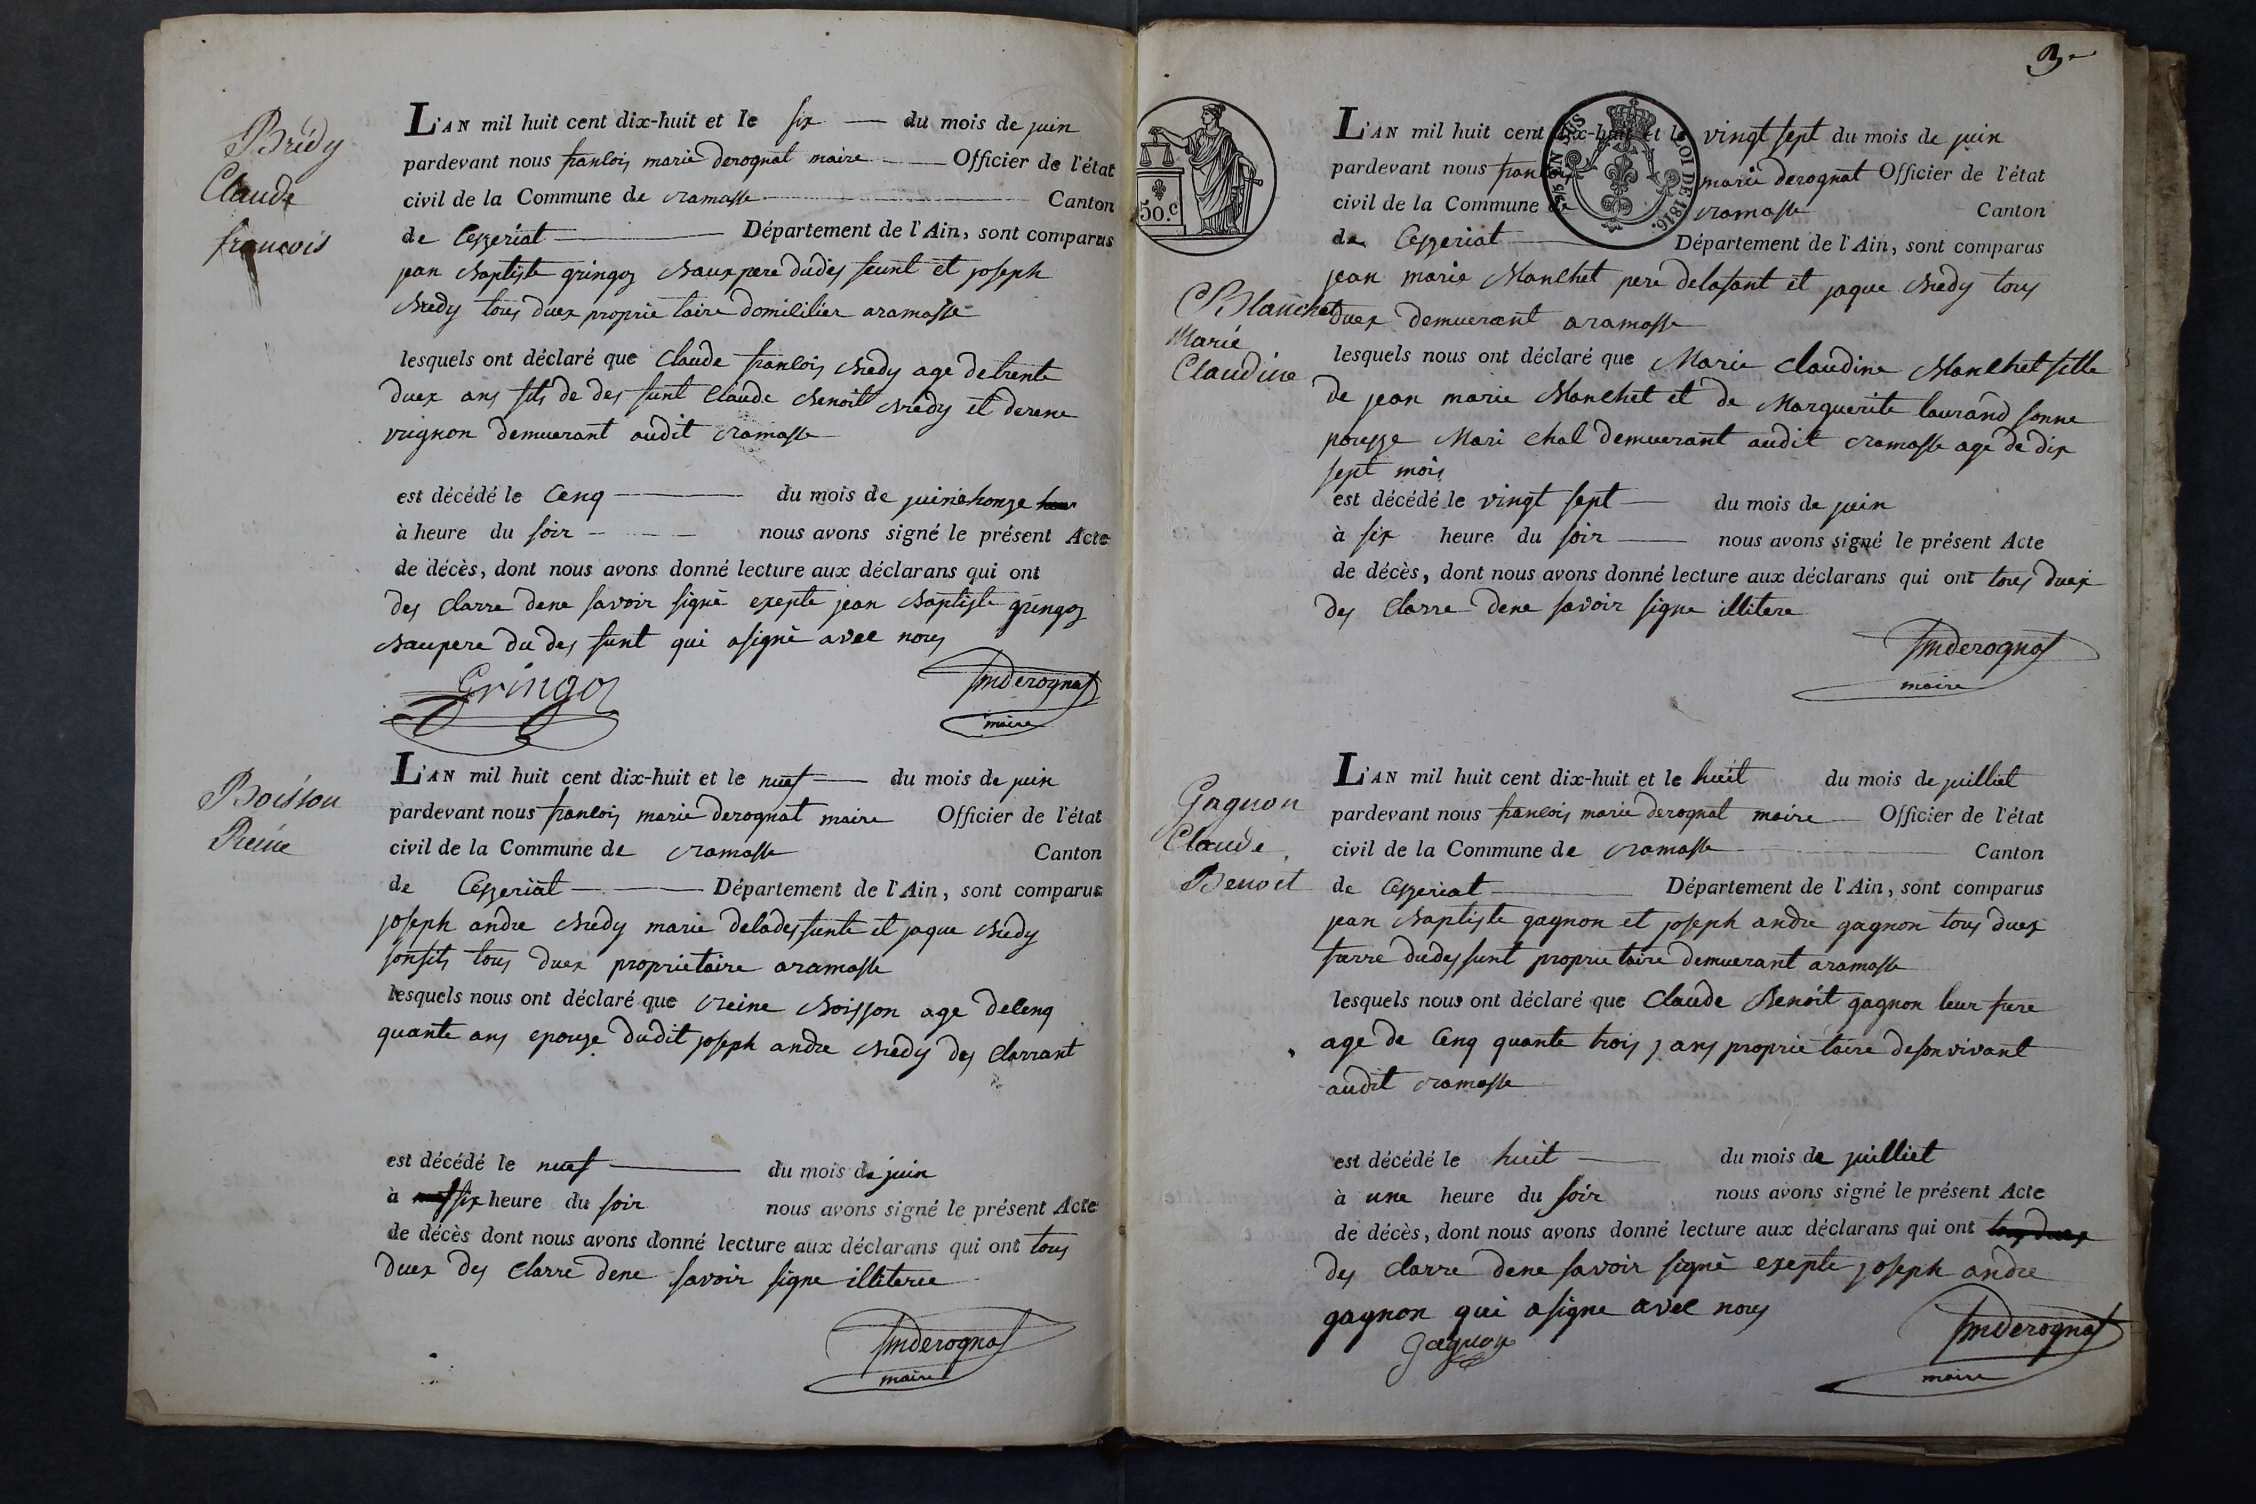 Brédy
Claude
francois
L'AN mil huit cent dix-huit et le six du mois de juin
pardevant nous francois marie derognat maire Officier de l'état
civil de la Commune de ramasse Canton
de Ceyzeriat Département de l'Ain, sont comparus
jean Baptiste gringoz Baux pere dudes funt et joseph
Bredy tous duex proprie taire domicilier aramasse
lesquels ont déclaré que Claude francois Bredy age detrente
duex ans fils de des funt Claude Benoit Bredy et derene
vrignon demuerant audit ramasse
est décédé le Cenq du mois de juin à honze
à heure du soir nous avons signé le présent Acte
de décès, dont nous avons donné lecture aux déclarans qui ont
des Clarre dene savoir signé exepte jean Baptiste gringoz
Baupere du des funt qui asigné avec nous
Gringoz fmderognat
maire
Boisson
Reine
L'AN mil huit cent dix-huit et le nuef du mois de juin
pardevant nous francois marie derognat maire Officier de l'état
civil de la Commune de ramasse Canton
de Ceyzeriat Département de l'Ain, sont comparus
joseph andre Bredy marie deladesfunte et jaque Bredy
sonfils tous duex proprietaire aramasse
lesquels nous ont déclaré que reine Boisson age decenq
quante ans epouze dudit joseph andre Bredy des Clarrant
est décédé le nuef du mois de juin
à six heure du soir nous avons signé le présent Acte
de décès dont nous avons donné lecture aux déclarans qui ont tous
duex des Clarre dene savoir signe illiteree
fmderognat
maire
2e
50.c
TIMB. EN SUS
LOI DE 1816.
L'AN mil huit cent dix-huit et le vingt sept du mois de juin
pardevant nous francois marie derognat Officier de l'état
civil de la Commune de ramasse Canton
de Ceyzeriat Département de l'Ain, sont comparus
jean marie Blanchet pere delafant et jaque Bredy tous
duex demuerant aramasse
Blanchet
Marie
Claudine
lesquels nous ont déclaré que Marie Claudine Blanchet fille
de jean marie Blanchet et de Marguerite laurand sonne
pouzze Mari chal demuerant audit ramasse age de dix
sept mois
est décédé le vingt sept du mois de juin
à six heure du soir nous avons signé le présent Acte
de décès, dont nous avons donné lecture aux déclarans qui ont tous duex
des Clarre dene savoir signe illitere
fmderognat
maire
Gagnon
Claude
Benoit
L'AN mil huit cent dix-huit et le huit du mois de juilliet
pardevant nous francois marie derognat maire Officier de l'état
civil de la Commune de ramasse Canton
de Ceyzeriat Département de l'Ain, sont comparus
jean Baptiste gagnon et joseph andre gagnon tous duex
frerre dudesfunt proprietaire demuerant aramasse
lesquels nous ont déclaré que Claude Benoit gagnon leur frere
age de Cenq quante trois ans proprie taire desonvivant
audit ramasse
est décédé le huit du mois de juilliet
à une heure du soir nous avons signé le présent Acte
de décès, dont nous avons donné lecture aux déclarans qui ont tous duex
des Clarre dene savoir signé exepte joseph andre
gagnon qui asigne avec nous
Gagnon fmderognat
maire